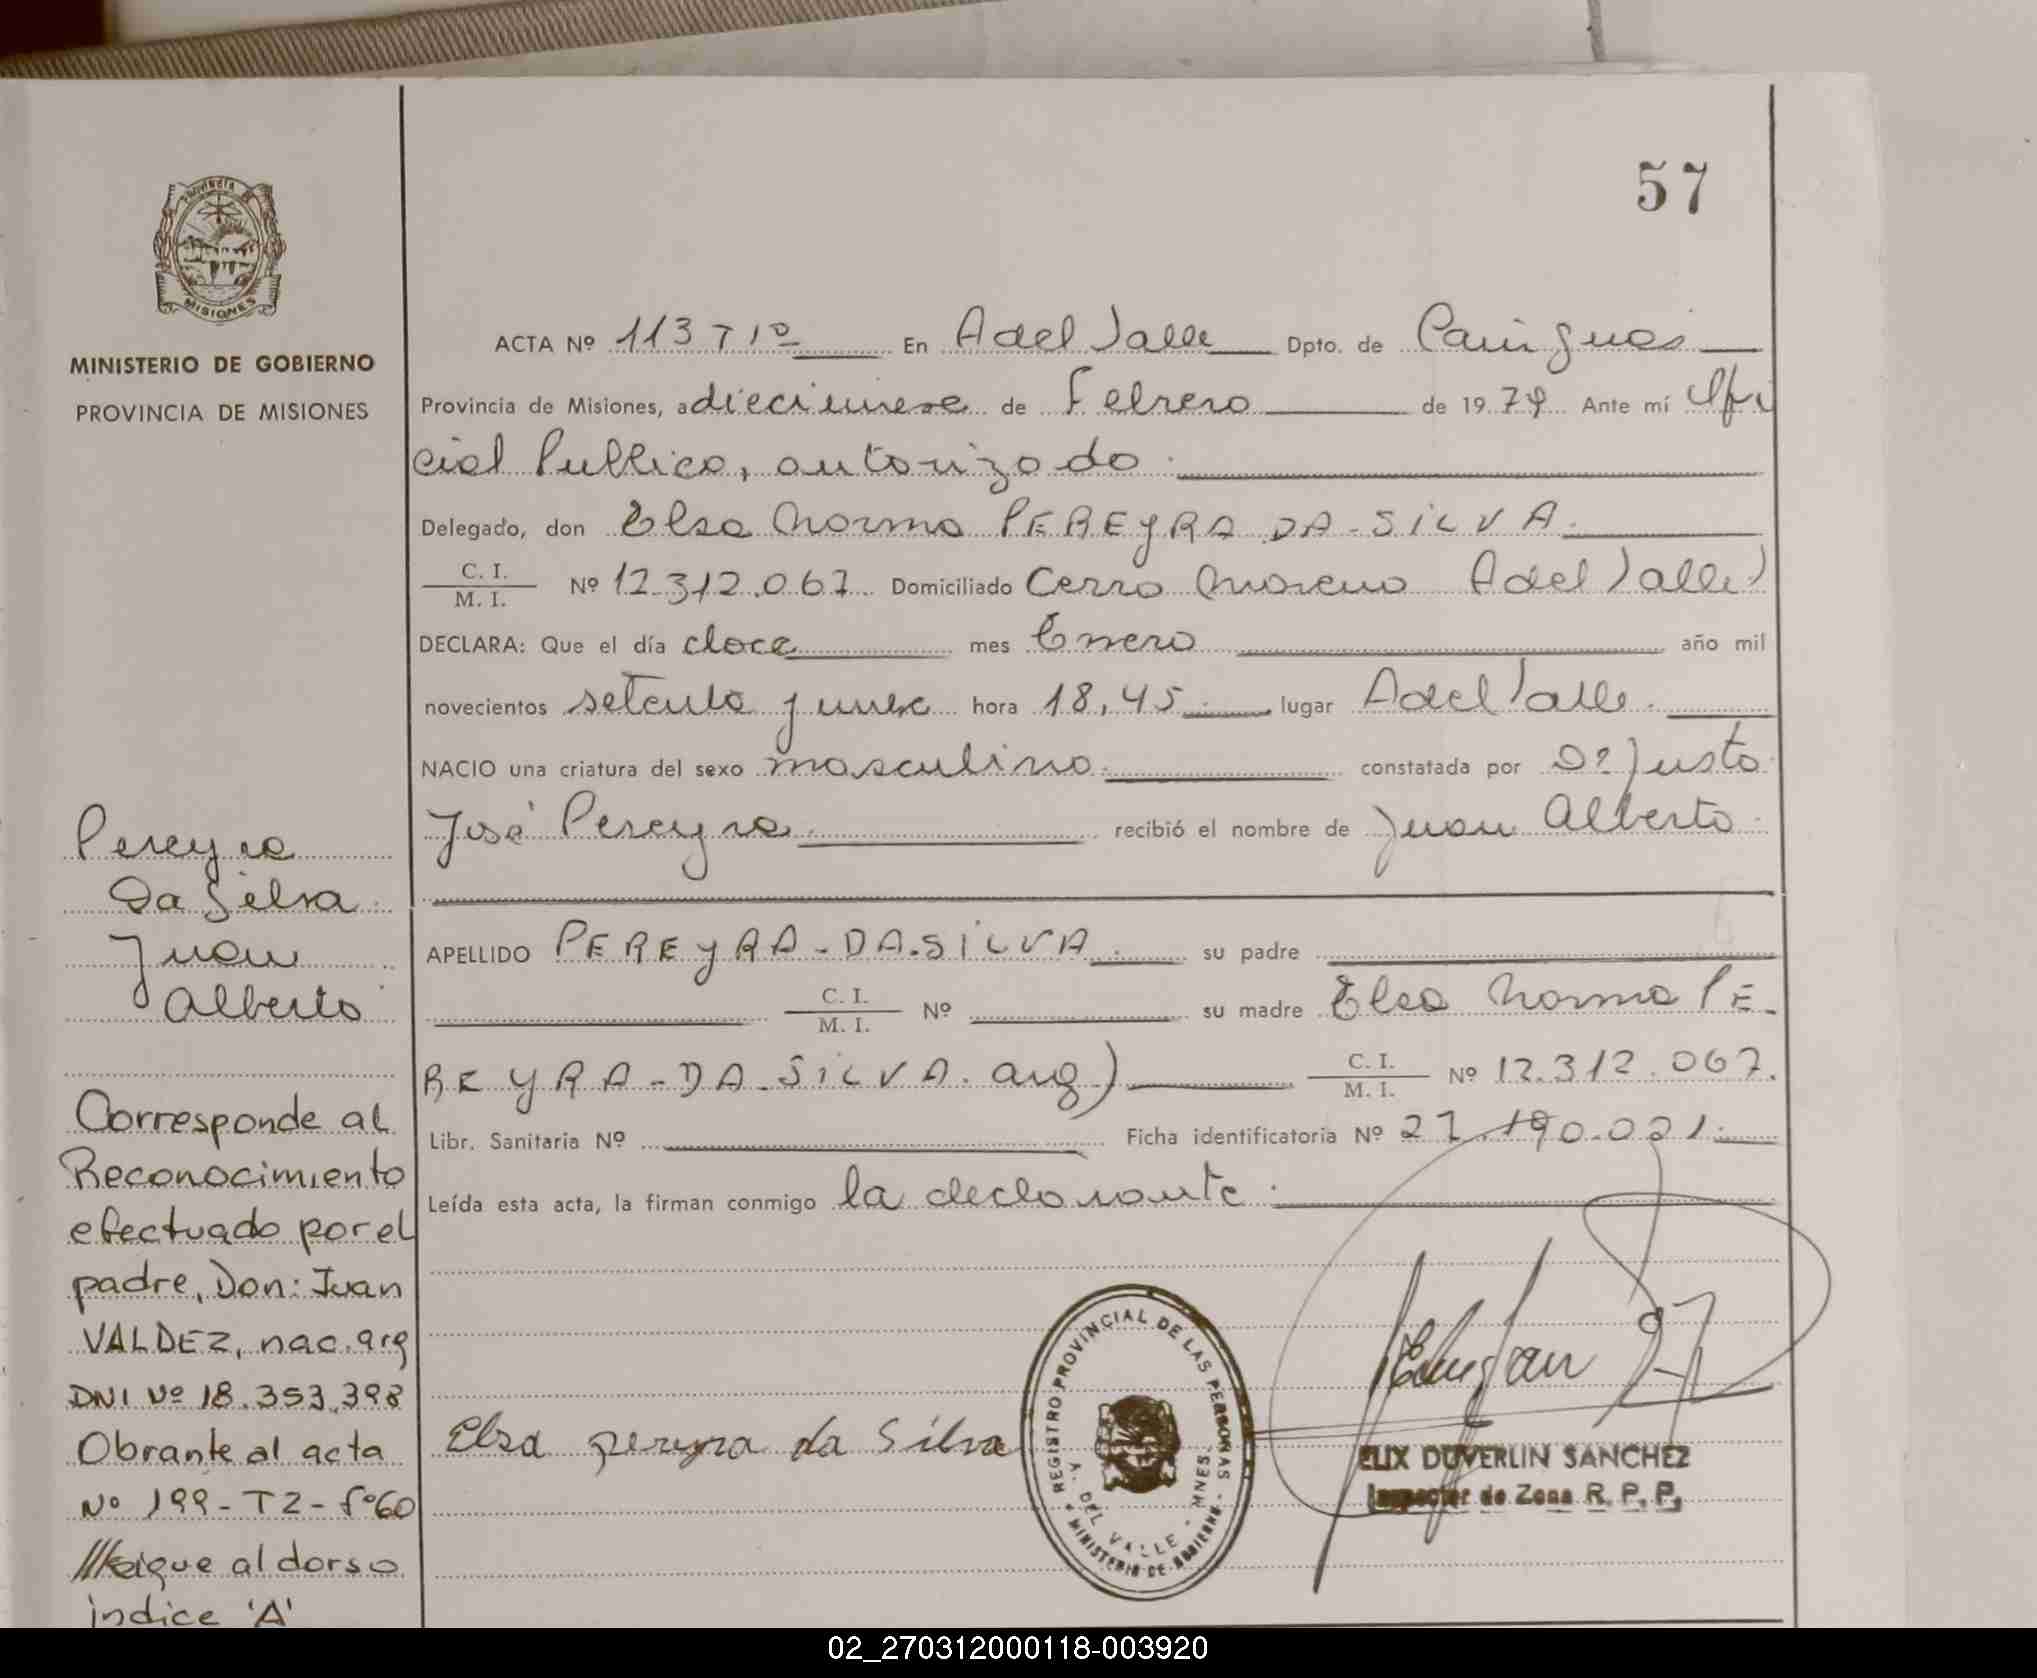 57
PROVINCIA
MISIONES
MINISTERIO DE GOBIERNO
PROVINCIA DE MISIONES
ACTA Nº 113 T 1º En A del Valle Dpto. de Cainguas
Provincia de Misiones, a diecinueve de Febrero de 1979 Ante mí Ofi
cial Publico, autorizado
Delegado, don Elsa Norma PEREYRA DA-SILVA.
C. I.
M. I. Nº 12.312.067 Domiciliado Cerro Moreno A del Valle)
DECLARA: Que el día doce mes Enero año mil
novecientos setenta y nueve hora 18,45 lugar A del Valle.
NACIO una criatura del sexo masculino constatada por Dº Justo
José Pereyra recibió el nombre de Juan Alberto
APELLIDO PEREYRA-DA-SILVA su padre
C. I.
M. I. Nº su madre Elsa Norma PE-
REYRA-DA-SILVA. arg) C. I.
M. I. Nº 12.312.067.
Libr. Sanitaria Nº Ficha identificatoria Nº 27.190.021
Leída esta acta, la firman conmigo la declarante.
Pereyra
Da Silva
Juan
Alberto
Corresponde al
Reconocimiento
efectuado por el
padre, Don: Juan
VALDEZ, nac. arg
DNI Nº 18.353.398
Obrante al acta
Nº 199-T2-fº60
///sigue al dorso
indice 'A'
Elsa pereyra da Silva
REGISTRO PROVINCIAL DE LAS PERSONAS
A. DEL VALLE - MNES.
MINISTERIO DE GOBIERNO
ELIX DUVERLIN SANCHEZ
Inspector de Zona R. P. P.
02_270312000118-003920